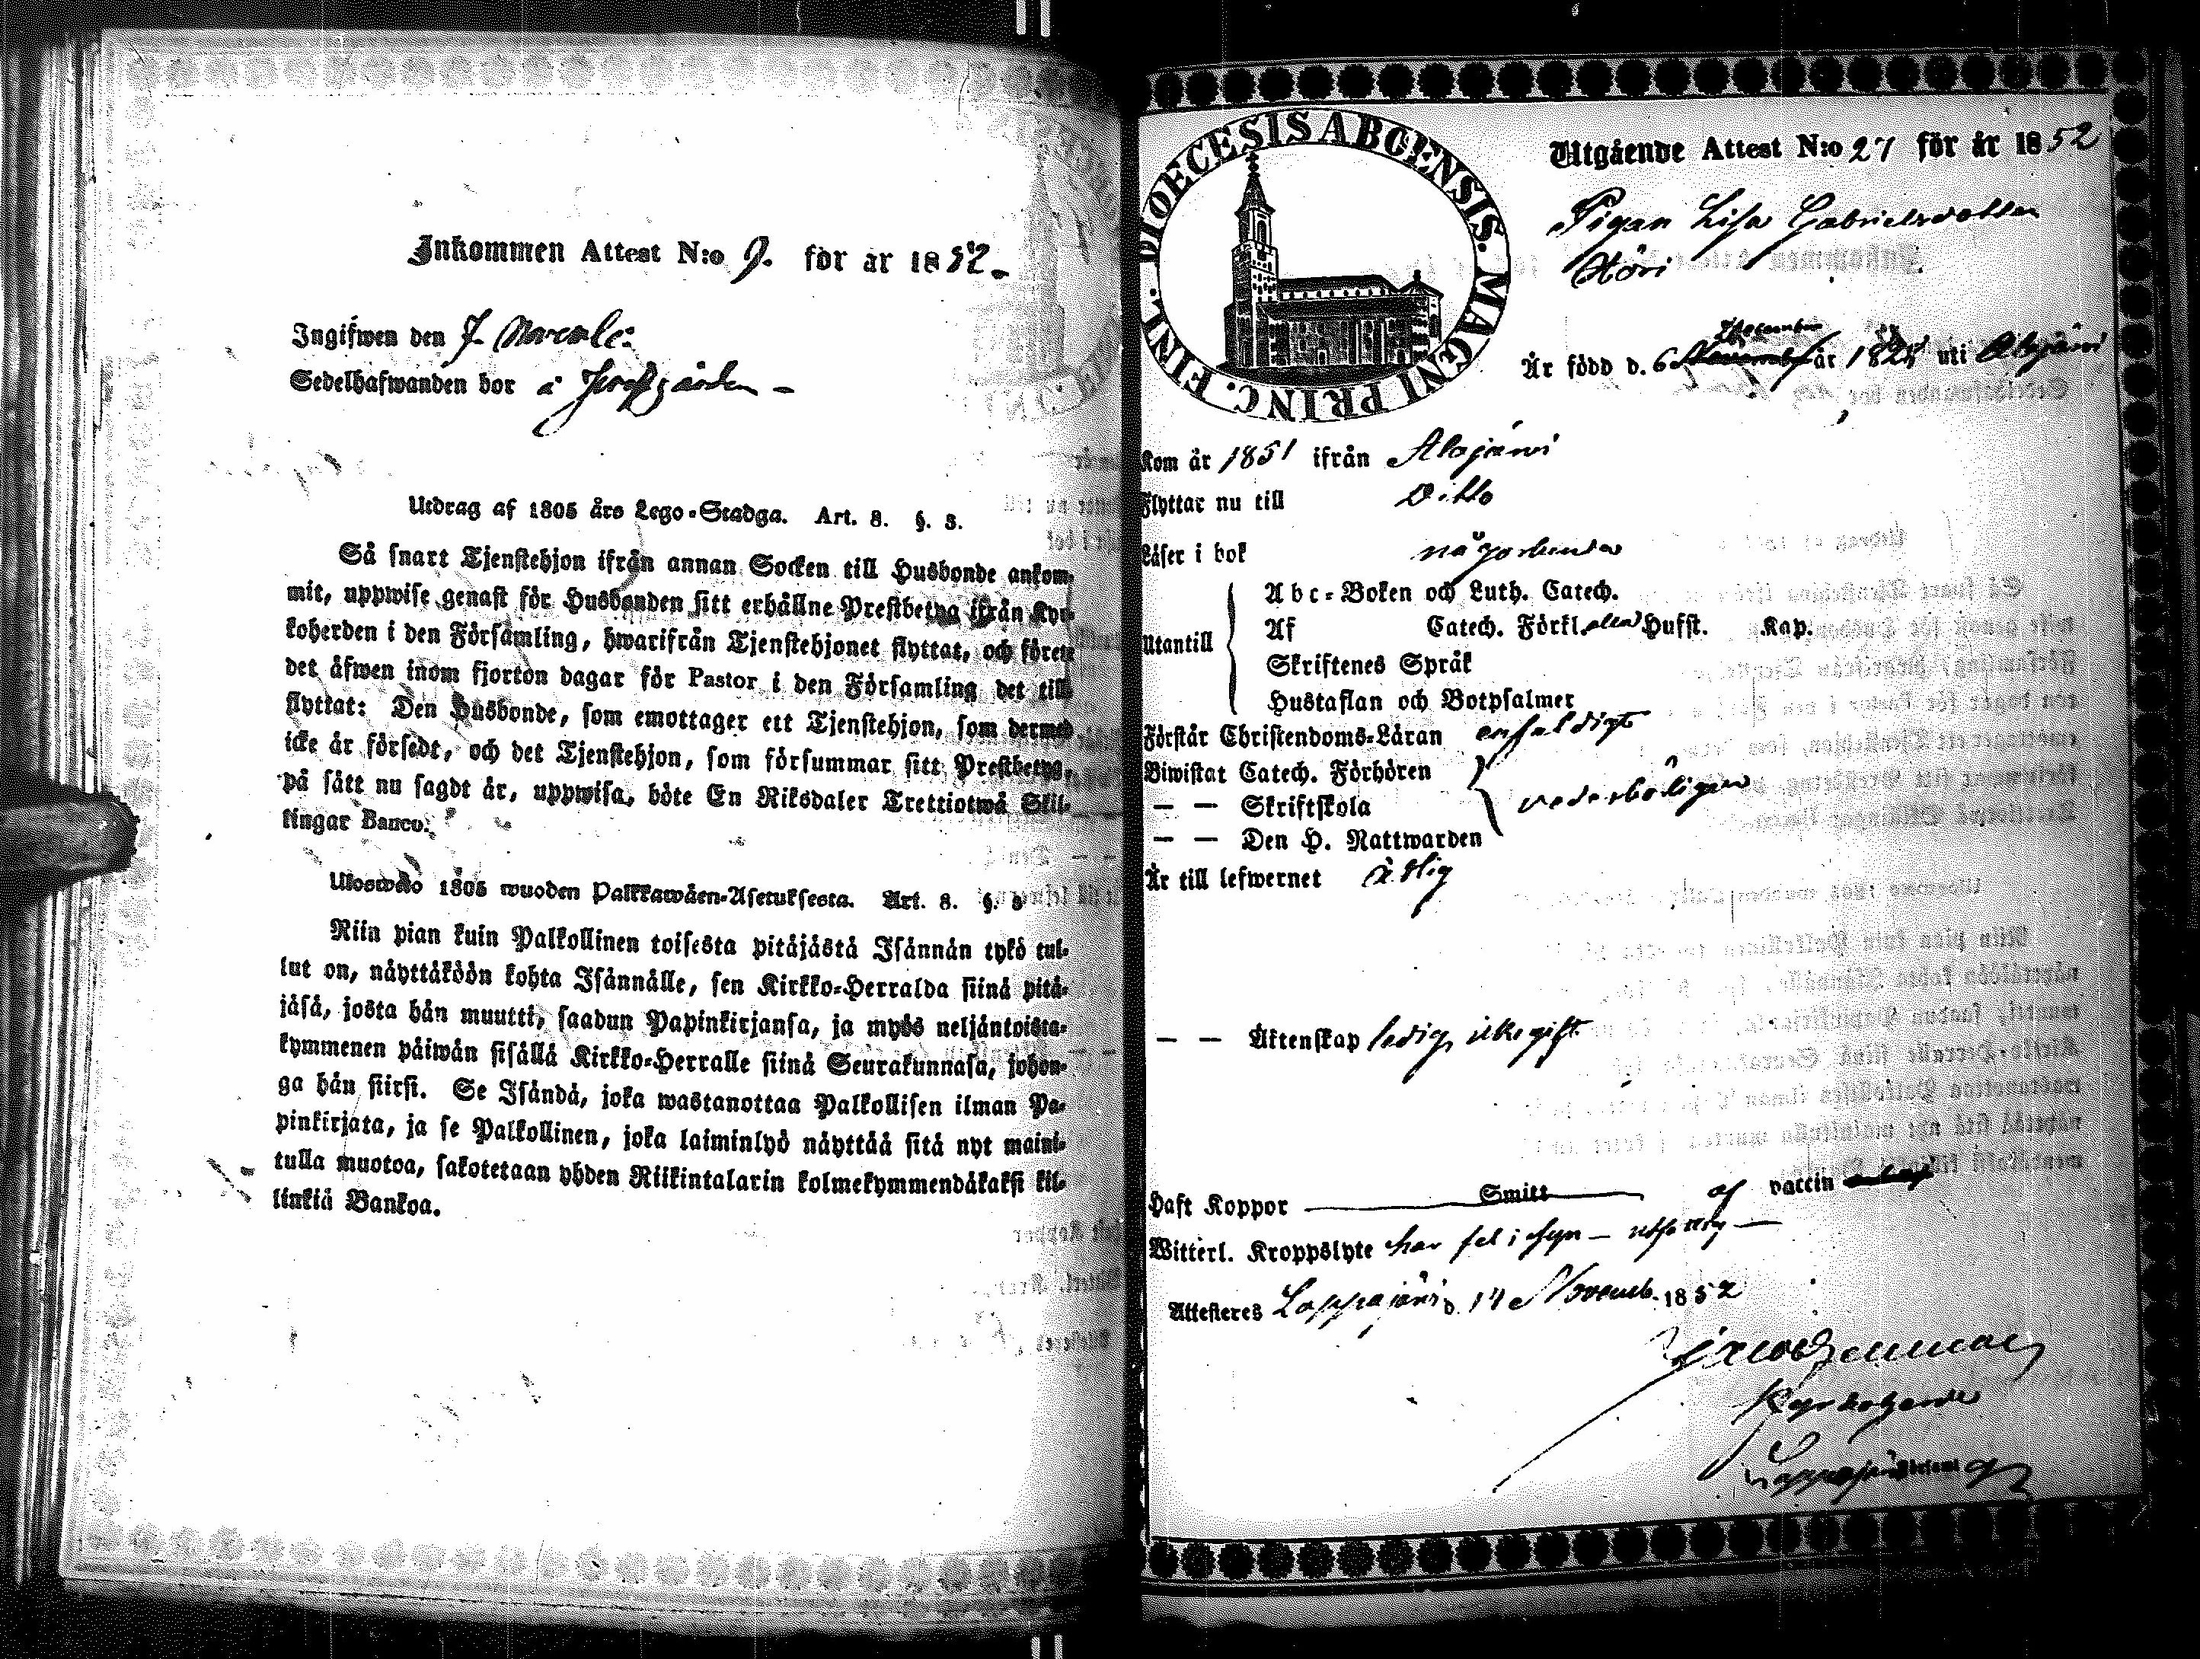 Inkommen Attest N:o 9. för år 1852.
Ingifwen den 7.
Sedelhafwanden bor å
Utdrag af 1805 års Lego-Stadga. Art. 8. §. 3.
Så snart Tjenstehjon ifrån annan Socken till Husbonde ankom-
mit, uppwise genast för Husbonden sitt erhållne Prestbetyg ifrån Kyr-
koherden i den Församling, hwarifrån Tjenstehjonet flyttat, och förete
det äfwen inom fjorton dagar för Pastor i den Församling det till-
flyttat: Den Husbonde, som emottager ett Tjenstehjon, som dermed
icke är försedt, och det Tjenstehjon, som försummar sitt Prestbetyg,
på sätt nu sagdt är, uppwisa, böte En Riksdaler Trettiotwå Skil-
lingar Banco.
Uloswäto 1805 wuoden Palkkawäen-Asetuksesta. Art. 8. §. 3
Niin pian kuin Palkollinen toisesta pitäjästä Isännän tykö tul-
lut on, näyttäköön kohta Isännälle, sen Kirkko-Herralda siinä pitä-
jäsä, josta hän muutti, saadun Papinkirjansa, ja myös neljäntoista-
kymmenen päiwän sisällä Kirkko-Herralle siinä Seurakunnasa, johon-
ga hän siirsi. Se Isändä, joka wastanottaa Palkollisen ilman Pa-
pinkirjata, ja se Palkollinen, joka laiminlyö näyttää sitä nyt maini-
tulla muotoa, sakotetaan yhden Riikintalarin kolmekymmendäkaksi kil-
linkiä Bankoa.
DIOECESIS ABOENSIS. MAGNI PRINC. FINL.
Utgående Attest N:o 27 för år 1852
Pigan Lisa Gabrielsdotter
Höri
December
Är född d. 6 år uti Alajärvi
Kom år 1851 ifrån Alajärvi
Flyttar nu till Ditto
Läser i bok någorlunda
Utantill
Abc-Boken och Luth. Catech.
Af Catech. Förkl. allen Husst. Kap.
Skriftenes Språk
Hustaflan och Botpsalmer
Förstår Christendoms-Läran enfaldigt
Biwistat Catech. Förhören
— — Skriftskola vederbörligen
— — Den H. Nattwarden
Är till lefwernet ärlig
— — Äktenskap ledig, icke gift
Haft Koppor Smitt af vaccin
Witterl. Kroppslyte har fel i syn —
Attesteres Lappajärvi d. 14 Novemb. 1852
Kyrkoherde
Lappajärvi